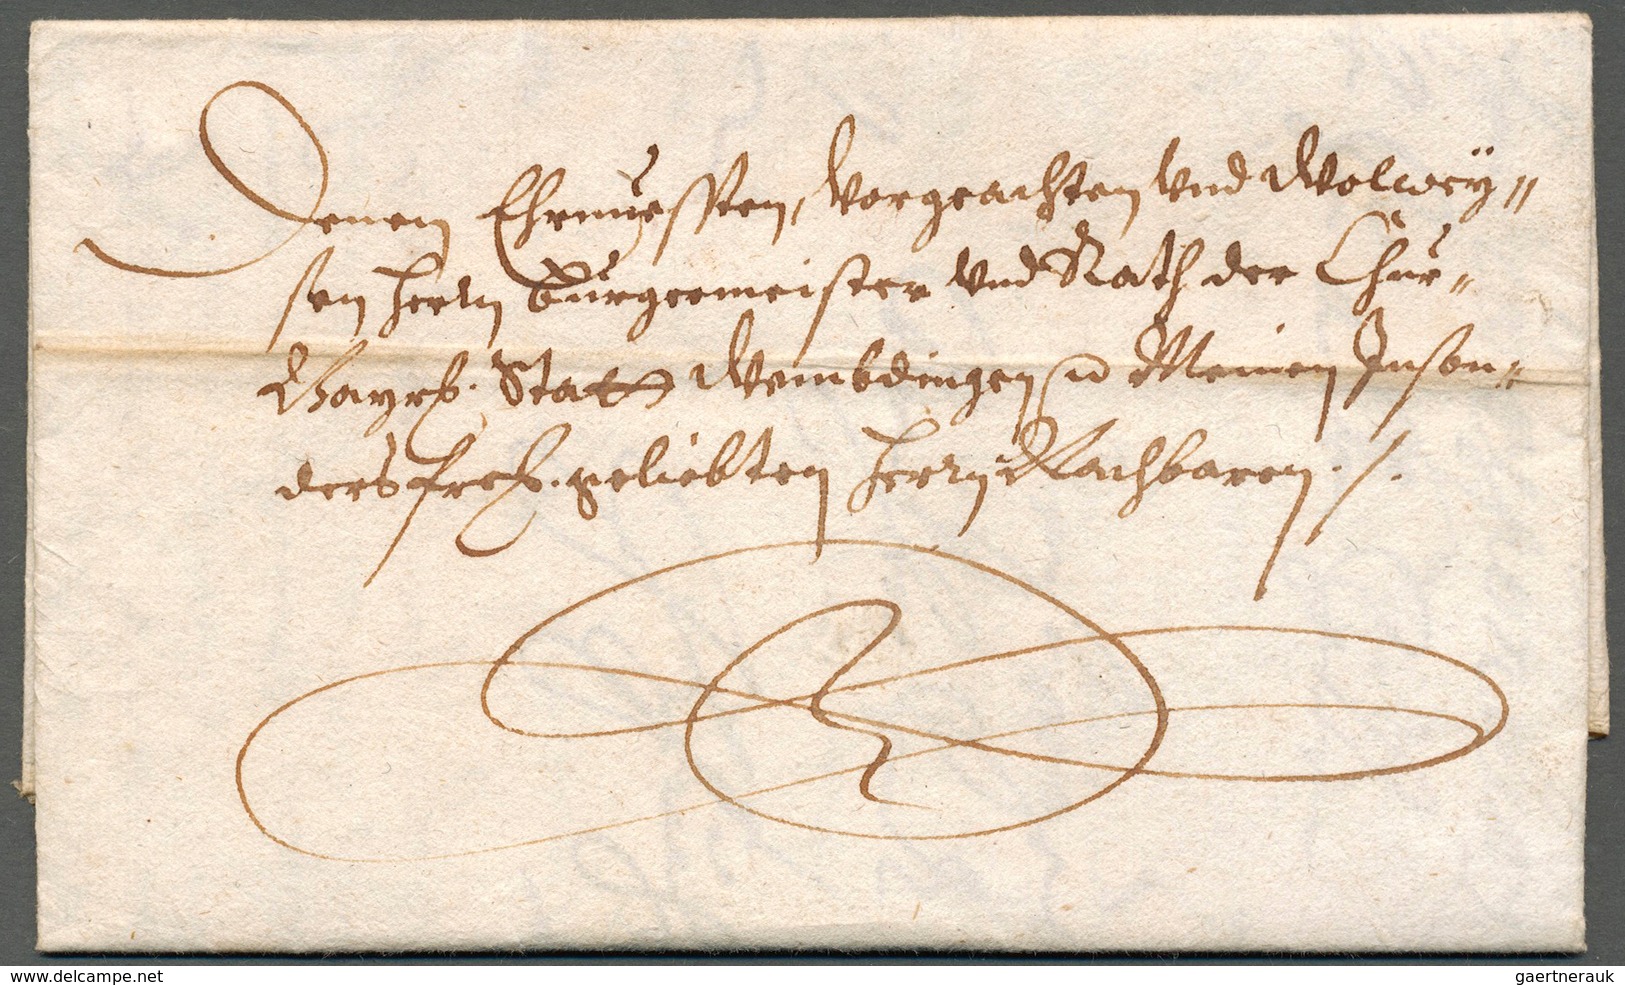 Denen Ehrnuessten, Vorgeachten Vnd Wolwey,,
sen Herrn Burgermeister Vnd Rath der Chur,,
Bayrs. Statt Wembdingen Meinen Inson,,
ders freh. geliebten Herrn Nachbaren ./.
www.delcampe.net
gaertnerauk